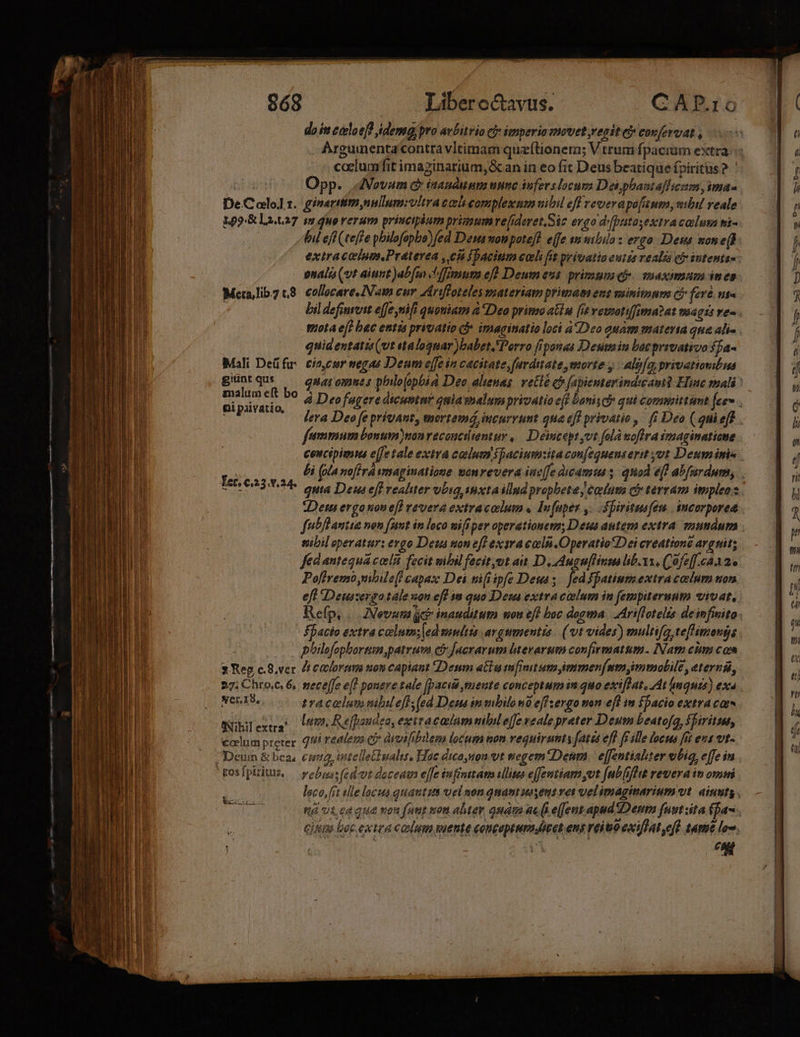 868 Liber octauus. CAP.10
do in cœlo est, idemq; pro arbitrio & imperio mouet, regit & conseruat,
Argumenta contra vltimam quæstionem; Vtrum spacium extra
cœlum sit imaginarium, & an in eo sit Deus beatique spiritus?
Opp. Nouum & inauditum nunc infers locum Dei, phantasticum, ima-
De Cœlo l 1. ginarium, nullum: vltra cœli complexum nihil est reuera positum, nihil reale
t.99. & l.2. t.27 in quo rerum principium primum resideret. Sic ergo disputo, extra cœlum ni-
hil est (teste philosopho) sed Deus non potest esse in nihilo: ergo Deus non est
extra cœlum. Præterea, cū spacium cœli sit priuatio entis realis & intentio-
onalis (vt aiunt) absimillimum est Deum ens primum & maximum in eo
Meta, lib. 7 t.8 collocare. Nam cur Aristoteles materiam primam ens minimum & fere ni-
hil definiuit esse, nisi quoniam à Deo primo actu sit remotissima? at magis re-
mota est hæc entis priuatio & imaginatio loci à Deo quàm materia quæ ali-
quid entatis (vt ita loquar) habet. Porro si ponas Deum in hac priuatiuo spa-
Mali Defi͂r cio, cur negas Deum esse in cæcitate, surditate, morte, alijsq; priuationibus
giunt qus quas omnes philosophi à Deo alienas rectè & sapienter indicant? Hinc mali
malum est bo à Deo fugere dicuntur quia malum priuatio est boni, & qui committunt sce-
ni piivatio, lera Deo se priuant, mortemq́, incurrunt quæ est priuatio, si Deo (qui est
summum bonum) non reconcilientur. Deincept, vt sola nostra imaginatione
concipimus esse tale extra cœlum spacium: ita consequens erit, vt Deum ini-
bi sola nostrâ imaginatione non reuera inesse dicamus; quod est absurdum,
Ier. c.23. v.24. quia Deus est realiter vbiq, iuxta illud prophetæ, cœlum & terram impleo:
Deus ergo non est reuera extra cœlum. Insuper, spiritus seu incorporea
substantia non sunt in loco nisi per operationem; Deus autem extra mundum
nihil operatur: ergo Deus non est extra cœlū. Operatio Dei creatione arguit;
sed antequā cœlū fecit nihil fecit, vt ait D. Augustinus lib. 11. Cōfess. ca. 12.
Postremò, nihil est capax Dei nisi ipse Deus; sed spatium extra cœlum non
est Deus: ergo tale non est in quo Deus extra cœlum in sempiternum viuat.
Resp. Nouum & inauditum non est hoc dogma Aristotelis de infinito
spacio extra cœlum; sed multis argumentis (vt vides) multisq, testimonijs
philosophorum, patrum & sacrarum literarum confirmatum. Nam cùm cœ-
3 Reg c.8. ver li cœlorum non capiant Deum actu infinitum, immensum, immobilē, æternū,
27; Chro. c. 6, necesse est ponere tale spaciū, mente conceptum in quo existat. At (inquis) ex-
ver. 18. tra cœlum nihil est; sed Deus in nihilo nō est: ergo non est in spacio extra cœ-
Nihil extra lum. Respondeo, extra cœlum nihil esse reale præter Deum beatosq, spiritus,
cœlum preter qui realem & diuisibilem locum non requirunt; satis est si ille locus sit ens vt-
Deum & bea- cunq, intellectualis. Hoc dico, non vt negem Deum essentialiter vbiq, esse in
tos spiritus. rebus; sed vt doceam esse infinitam illius essentiam, vt subsistat reuera in omni
loco, sit ille locus quantus vel non quantus, ens res vel imaginarium vt aiunt;
nā vt ea quæ non sunt non aliter quàm ac si essent apud Deum sunt: ita spa-
cium hoc extra cœlum mente conceptum, licet ens rei nō existat, est tamē lo-
cus